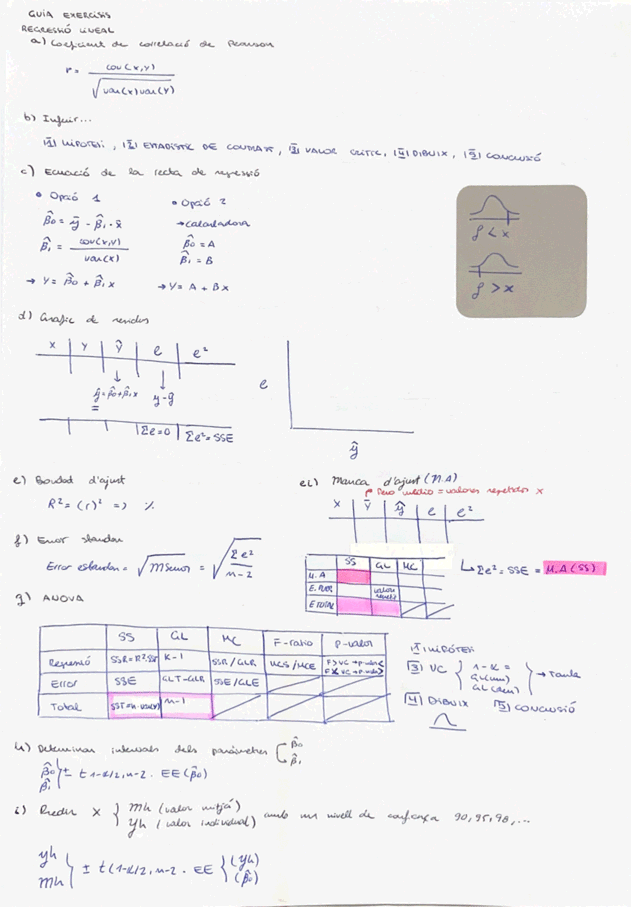 GUIA EXERCISIS
REGRESSIÓ LINEAL
a) Coeficient de correlació de Pearson
r = cov(x,y) / √var(x)var(y)
b) Inferir...
[1] HIPÒTESI, [2] ESTADÍSTIC DE CONTRAST, [3] VALOR CRÍTIC, [4] DIBUIX, [5] CONCLUSIÓ
c) Equació de la recta de regressió
• Opció 1 • Opció 2
β̂0 = ȳ - β̂1 · x̄ → calculadora
β̂1 = cov(x,y) / var(x)
β̂0 = A
β̂1 = B
→ Y = β̂0 + β̂1 x → Y = A + Bx
f < x
f > x
d) Gràfic de residus
x | y | ŷ | e | e²
ŷ = β̂0 + β̂1 x y - ŷ
Σe=0 | Σe²=SSE
e
ŷ
e) Bondad d'ajust
R² = (r)² => %
ei) Manca d'ajust (M.A)
valores repetidos x
x | ȳ | ŷ | e | e²
f) Error estandar
Error estandar = √MSerror = √Σe² / n-2
SS | GL | MC
M.A
E. PUR
E TOTAL
↳ Σe² = SSE = M.A (SS)
g) ANOVA
SS | GL | MC | F-ratio | p-valor
Regressió | SSR=R²·SST | K-1 | SSR/GLR
Error | SSE | GLT-GLR | SSE/GLE
Total | SST=n·var(y) | n-1
[1] HIPÒTESI
[3] VC { 1-α = GL(num) GL(den) } → Taula
[4] DIBUIX [5] CONCLUSIÓ
h) Determinar intervals dels paràmetres { β̂0 β̂1
β̂0 β̂1 } ± t 1-α/2, n-2 · EE (β̂0)
i) Predir X { mh (valor mitjà) yh (valor individual) } amb un nivell de confiança 90, 95, 98, ...
yh mh } ± t (1-α/2, n-2 · EE { (yh) (β̂0)